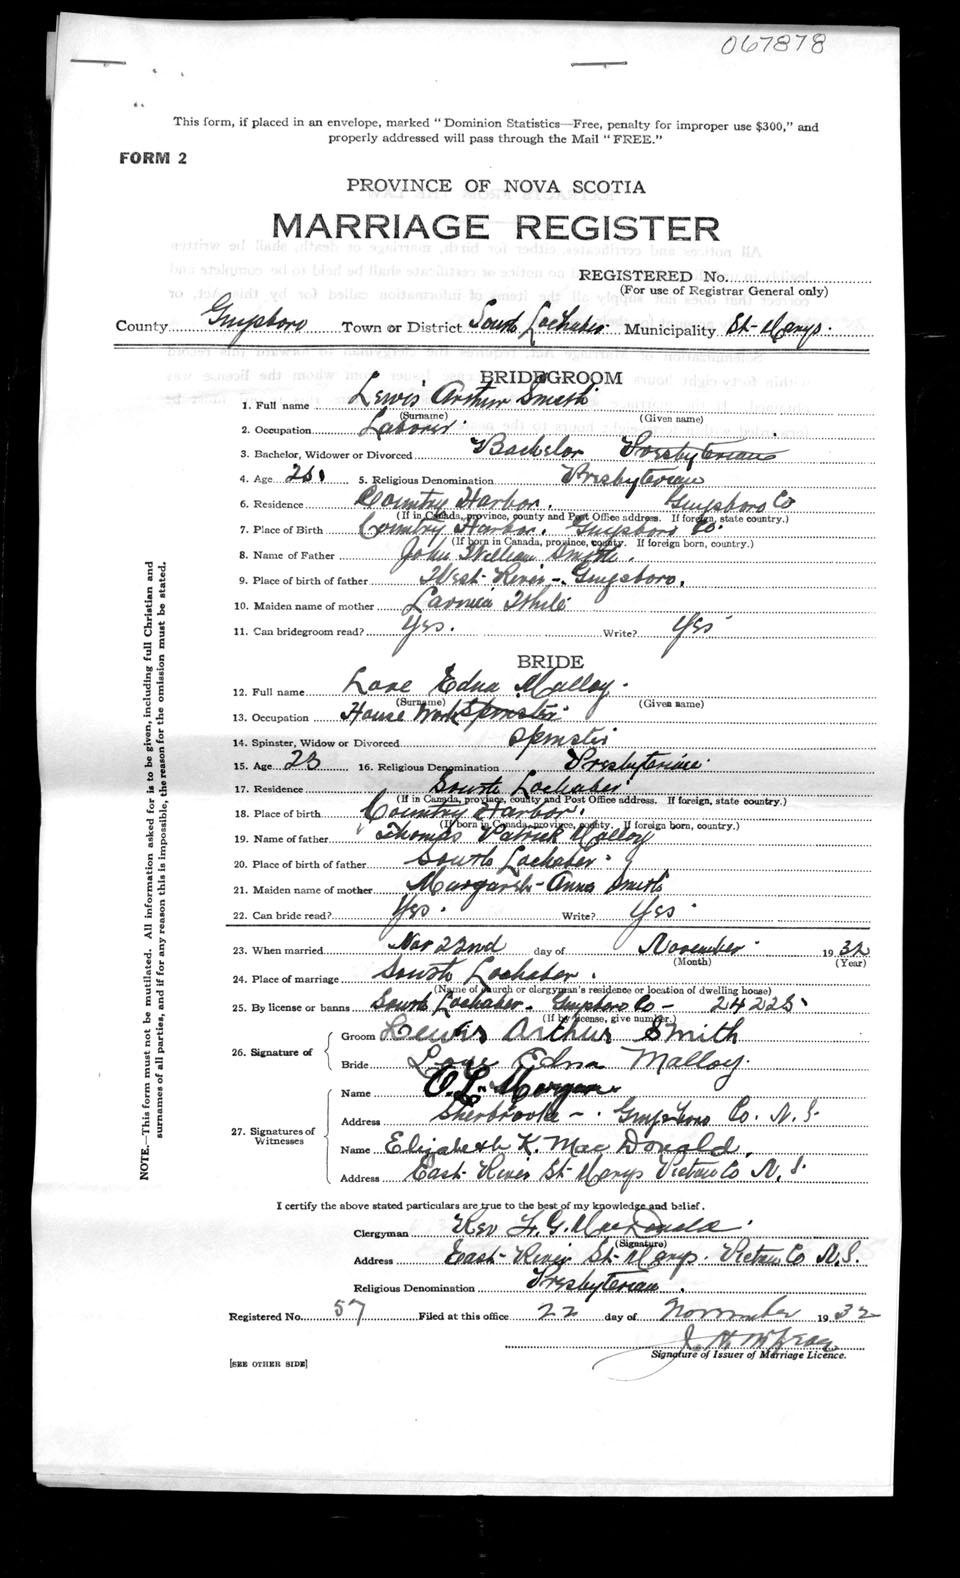 067878
This form, if placed in an envelope, marked "Dominion Statistics—Free, penalty for improper use $300," and
properly addressed will pass through the Mail "FREE."
FORM 2
PROVINCE OF NOVA SCOTIA
MARRIAGE REGISTER
REGISTERED No.
(For use of Registrar General only)
County Guysboro Town or District South Lochaber Municipality St-Marys.
BRIDEGROOM
1. Full name Lewis Arthur Smith
(Surname) (Given name)
2. Occupation Laborer
3. Bachelor, Widower or Divorced Bachelor Presbyterian
4. Age 5. Religious Denomination Presbyterian
6. Residence Country Harbor. Guysboro Co
(If in Canada, province, county and Post Office address. If foreign, state country.)
7. Place of Birth Country Harbor. Guysboro Co.
(If born in Canada, province, county. If foreign born, country.)
8. Name of Father John William Smith.
9. Place of birth of father West-River-. Guysboro.
10. Maiden name of mother
11. Can bridegroom read? Yes. Write? Yes
BRIDE
12. Full name Edna Malloy.
(Surname) (Given name)
13. Occupation House Work Spinster
14. Spinster, Widow or Divorced Spinster
15. Age 23 16. Religious Denomination Presbyterian
17. Residence South Lochaber
(If in Canada, province, county and Post Office address. If foreign, state country.)
18. Place of birth Country Harbor.
(If born in Canada, province, county. If foreign born, country.)
19. Name of father Thomas Patrick Malloy
20. Place of birth of father South Lochaber
21. Maiden name of mother Margaret-Anna Smith
22. Can bride read? Yes. Write? Yes
23. When married Nov 22nd day of November 1932
(Month) (Year)
24. Place of marriage South Lochaber.
(Name of church or clergyman's residence or location of dwelling house)
25. By license or banns South Lochaber. Guysboro Co - 24225
(If by license, give number.)
26. Signature of
Groom Lewis Arthur Smith
Bride Edna Malloy.
27. Signatures of Witnesses
Name C. L. Morgan
Address Sherbrooke -. Guysboro Co. N. S.
Name Elizabeth K. Mac Donald.
Address East-River St-Marys Pictou Co N. S.
I certify the above stated particulars are true to the best of my knowledge and belief.
Clergyman Rev MacDonald.
(Signature)
Address East-River St-Marys. Pictou Co N. S.
Religious Denomination Presbyterian.
Registered No. 57 Filed at this office 22 day of November 1932
Signature of Issuer of Marriage Licence.
[SEE OTHER SIDE]
NOTE.—This form must not be mutilated. All information asked for is to be given, including full Christian and
surnames of all parties, and if for any reason this is impossible, the reason for the omission must be stated.